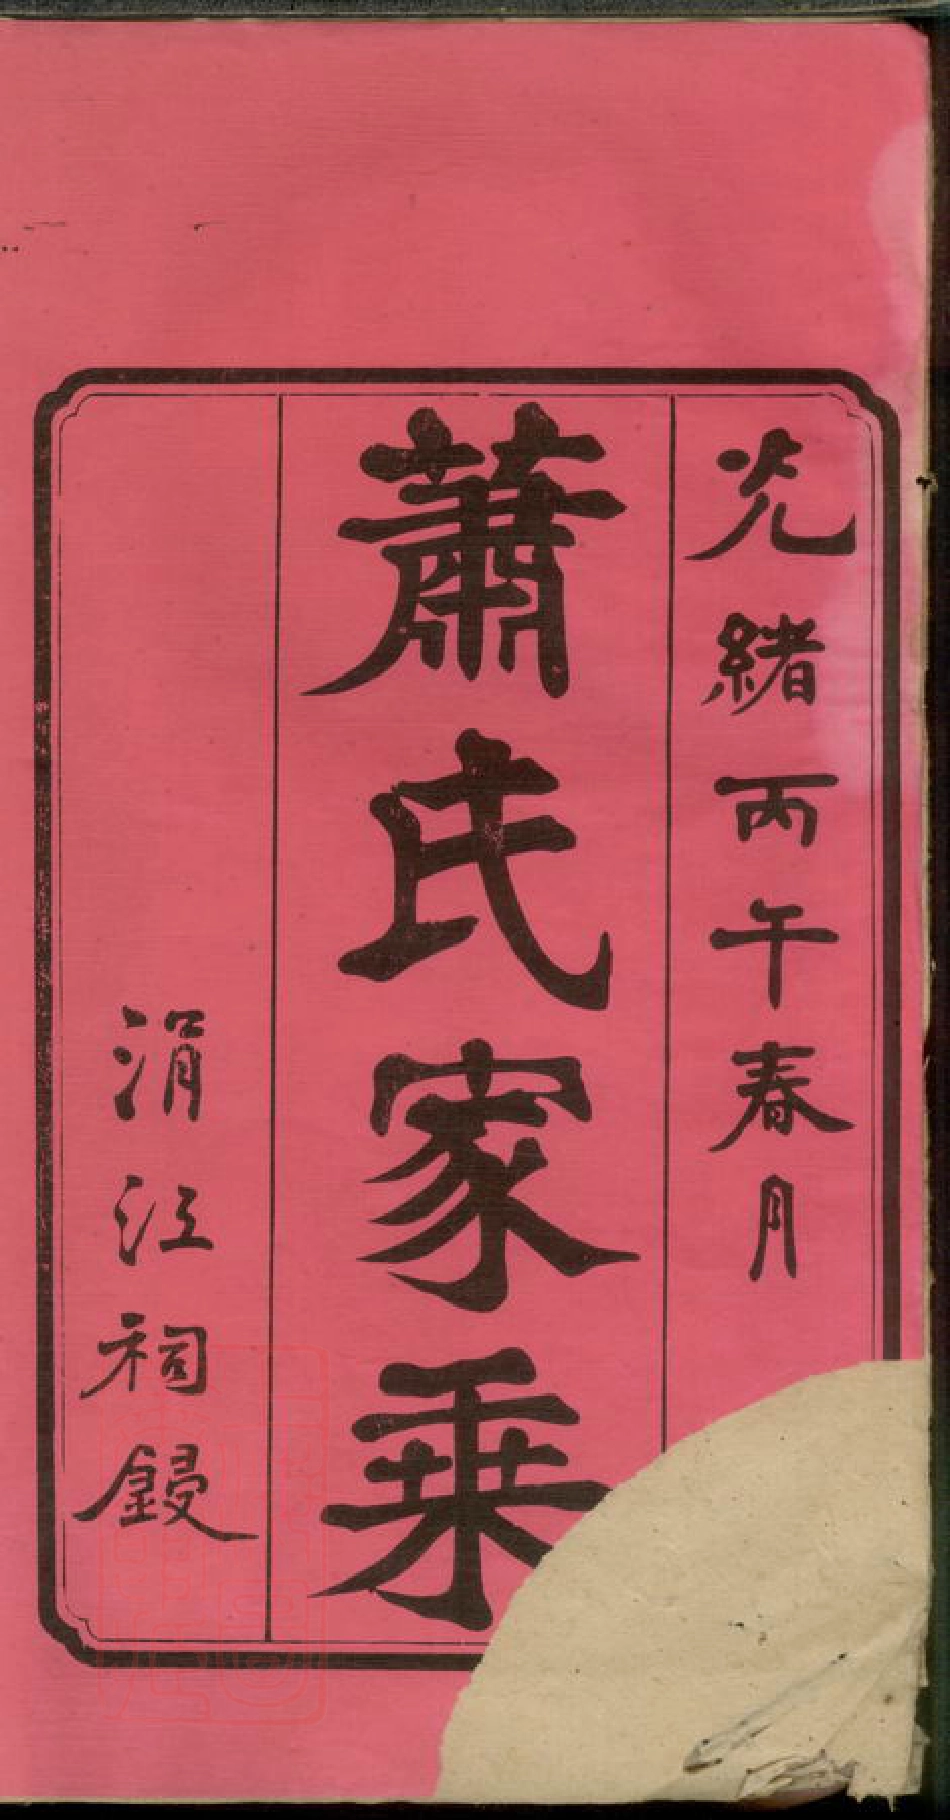 光緒丙午春月
蕭氏家乘
涓江祠鋟